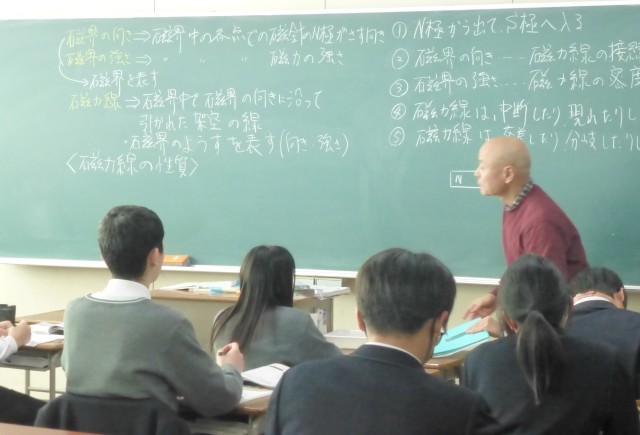 磁界の向き⇒磁界中の各点での磁針のN極がさす向き
磁界の強さ⇒ 〃 〃 〃 磁力の強さ
→磁界を表す
磁力線⇒磁界中で磁界の向きに沿って
引かれた架空の線
・磁界のようすを表す(向き 強さ)
〈磁力線の性質〉
① N極から出て、S極へ入る
② 磁界の向き…磁力線の接線
③ 磁界の強さ…磁力線の密度
④ 磁力線は、中断したり 現れたりし
⑤ 磁力線は 交差したり/分岐したりし
N